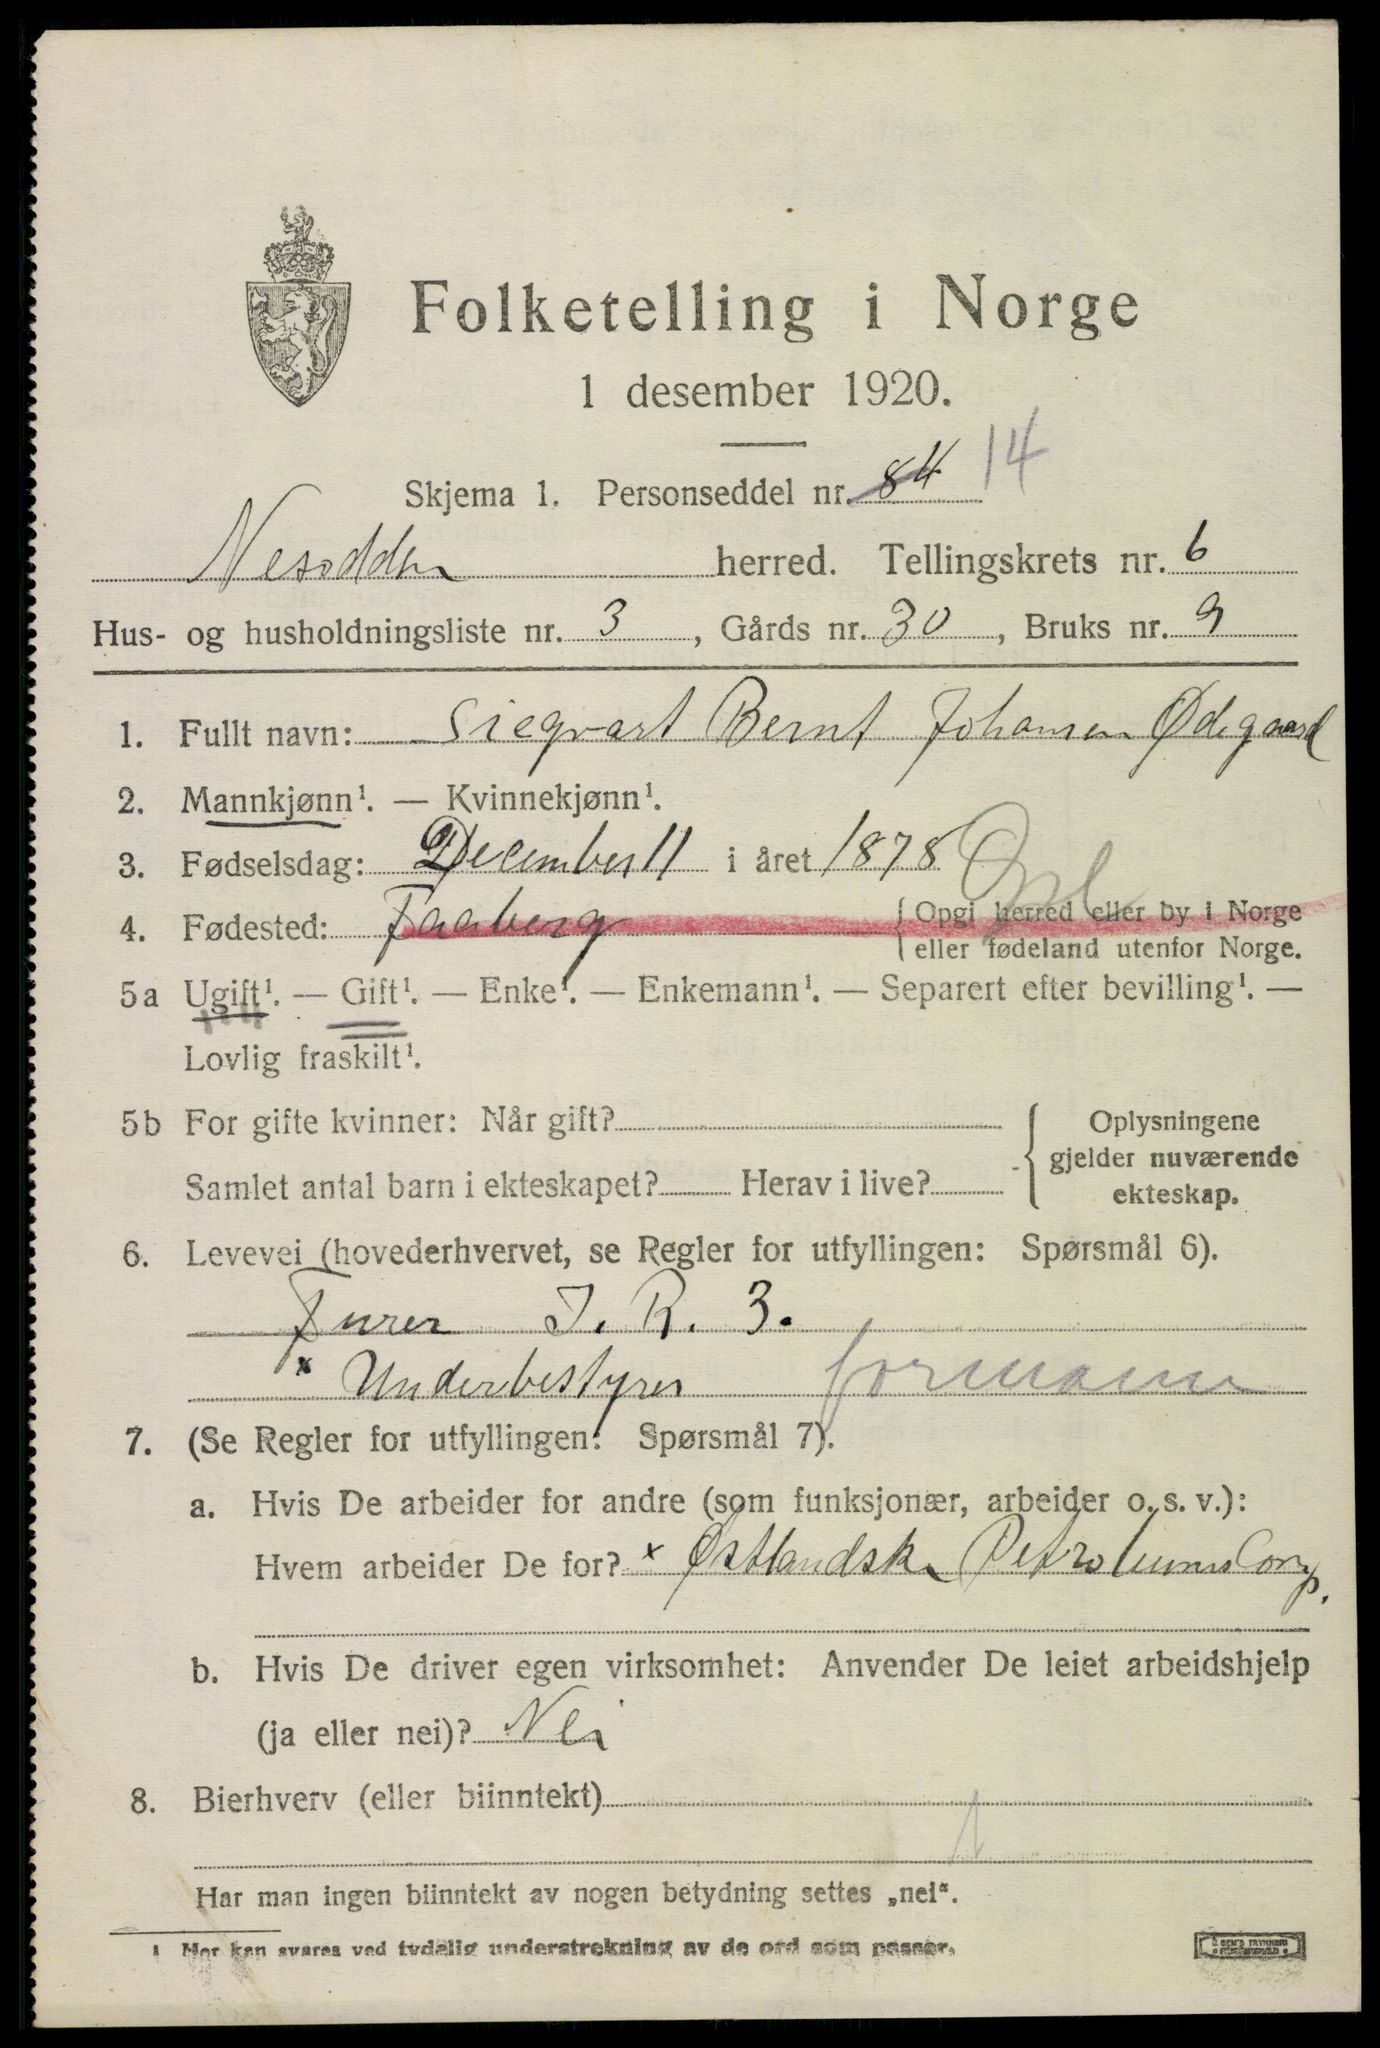 Folketelling i Norge
1 desember 1920.
Skjema 1. Personseddel nr. 84 14
Nesodden herred. Tellingskrets nr. 6
Hus- og husholdningsliste nr. 3, Gårds nr. 30, Bruks nr. 9
1. Fullt navn: Siegvart Bernt Johansen Ødegaard
2. Mannkjønn¹. — Kvinnekjønn¹.
3. Fødselsdag: December 11 i året 1878
Opl
4. Fødested: Faaberg { Opgi herred eller by i Norge
eller fødeland utenfor Norge.
5a Ugift¹. — Gift¹. — Enke¹. — Enkemann¹. — Separert efter bevilling¹. —
Lovlig fraskilt¹.
5b For gifte kvinner: Når gift?
Samlet antal barn i ekteskapet? Herav i live?
Oplysningene
gjelder nuværende
ekteskap.
6. Levevei (hovederhvervet, se Regler for utfyllingen: Spørsmål 6).
Furer I. R. 3.
x Underbestyrer formann
7. (Se Regler for utfyllingen: Spørsmål 7).
a. Hvis De arbeider for andre (som funksjonær, arbeider o. s. v.):
Hvem arbeider De for? x Østlandske Petroleums Comp.
b. Hvis De driver egen virksomhet: Anvender De leiet arbeidshjelp
(ja eller nei)? Nei
8. Bierhverv (eller biinntekt)
Har man ingen biinntekt av nogen betydning settes „nei“.
1 Her kan svares ved tydelig understrekning av de ord som passer.